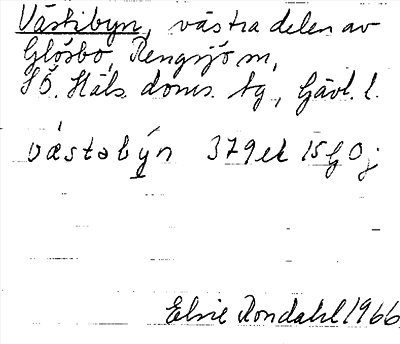 Västibyn, västra delen av
Glösbo, Rengsjö sn,
SÖ. Häls. doms. tg., Gävl. l.
västəbýn 379 ek 15G0j
Elsie Rondahl 1966